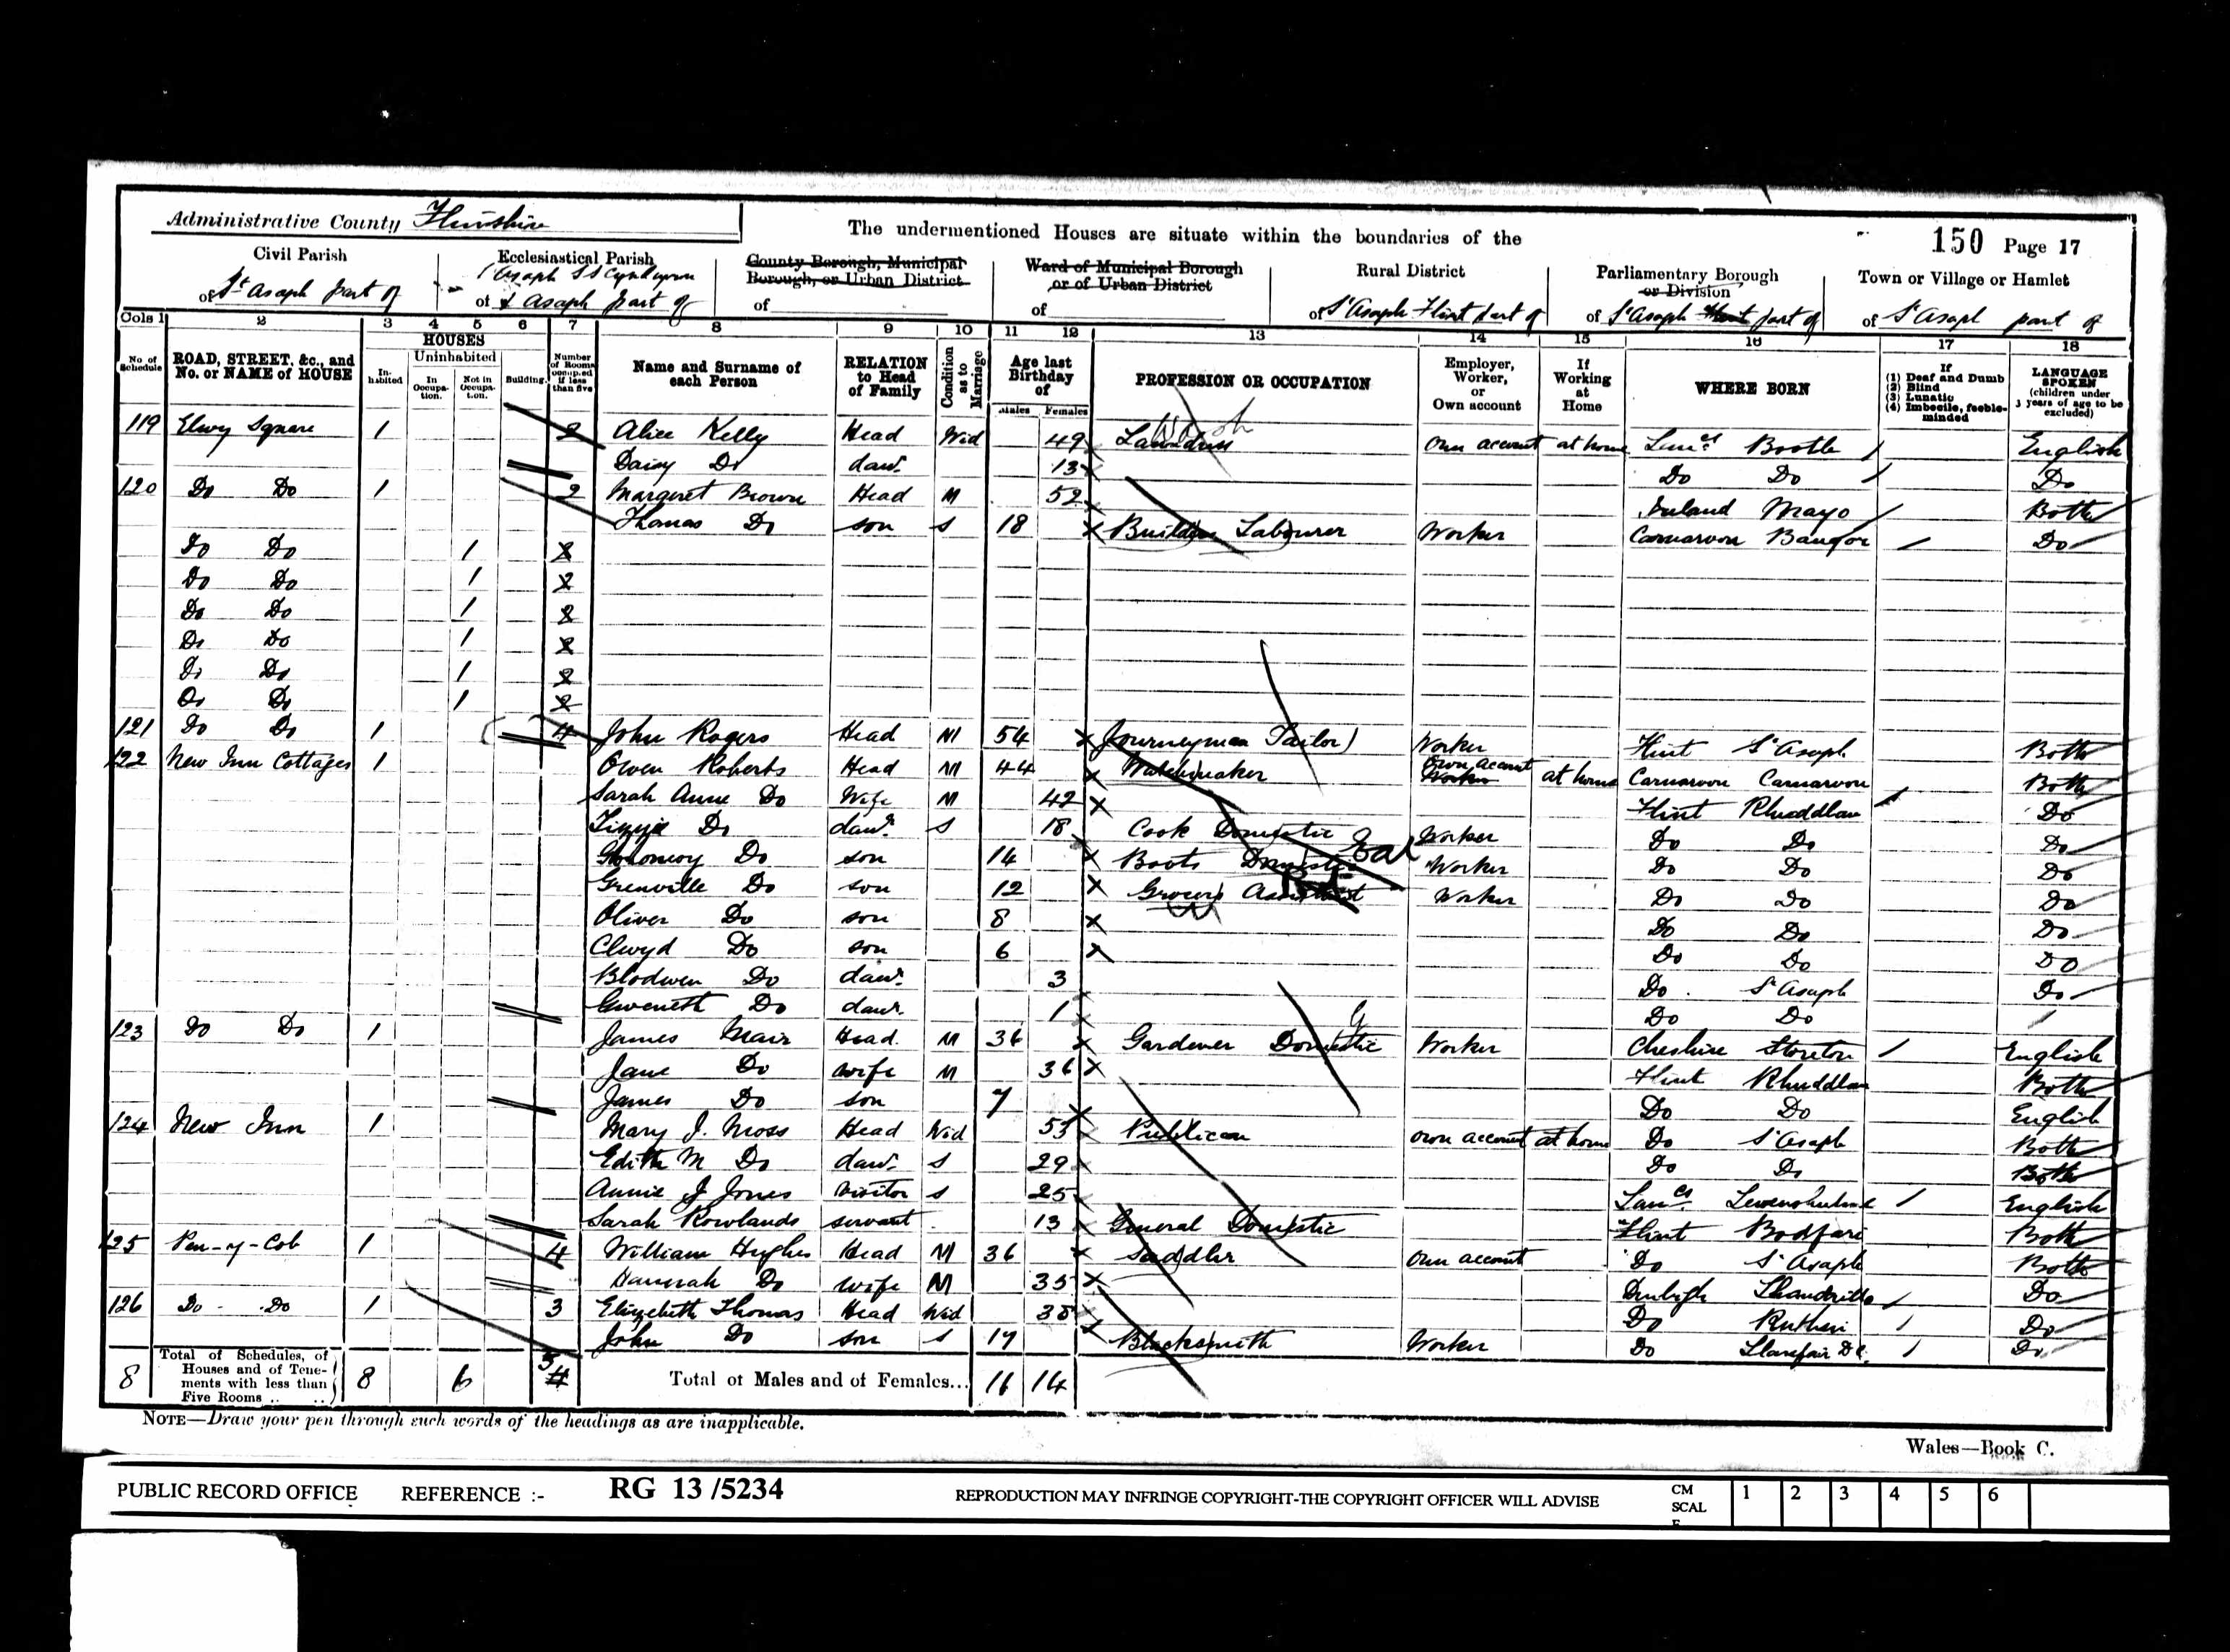 Administrative County Flintshire
The undermentioned Houses are situate within the boundaries of the
150 Page 17
Civil Parish
of St Asaph part of
Ecclesiastical Parish
of St Asaph part of
County Borough, Municipal Borough, or Urban District
of
Ward of Municipal Borough or of Urban District
of
Rural District
of St Asaph Flint part of
Parliamentary Borough or Division
of St Asaph Flint part of
Town or Village or Hamlet
of St Asaph part of
Cols 1 2 3 4 5 6 7 8 9 10 11 12 13 14 15 16 17 18
No. of Schedule
ROAD, STREET, &c., and No. or NAME of HOUSE
HOUSES
Inhabited
Uninhabited
In Occupation.
Not in Occupation.
Building.
Number of Rooms occupied if less than five
Name and Surname of each Person
RELATION to Head of Family
Condition as to Marriage
Age last Birthday of
Males Females
PROFESSION OR OCCUPATION
Employer, Worker, or Own account
If Working at Home
WHERE BORN
If (1) Deaf and Dumb (2) Blind (3) Lunatic (4) Imbecile, feeble-minded
LANGUAGE SPOKEN (children under 3 years of age to be excluded)
119 Elwy Square 1 2 Alice Kelly Head Wid 49 Laundress Own account at home Lancs Bootle English
Daisy Do daur. 13 Do Do Do
120 Do Do 1 2 Margaret Brown Head M 52 Ireland Mayo Both
Thomas Do son S 18 Builders Labourer Worker Carnarvon Bangor Do
Do Do 1 2
Do Do 1 2
Do Do 1 2
Do Do 1 2
Do Do 1 2
Do Do 1 2
121 Do Do 1 4 John Rogers Head M 54 Journeyman Tailor Worker Flint St Asaph Both
122 New Inn Cottages 1 Owen Roberts Head M 44 Watchmaker Own account Worker at home Carnarvon Carnarvon Both
Sarah Anne Do Wife M 42 Flint Rhuddlan Do
Lizzie Do daur. S 18 Cook Domestic Worker Do Do Do
Do son 14 Boots Domestic Worker Do Do Do
Grenville Do son 12 Grocers Assistant Worker Do Do Do
Oliver Do son 8 Do Do Do
Clwyd Do son 6 Do Do Do
Blodwen Do daur. 3 Do St Asaph Do
Gweneth Do daur. 1 Do Do
123 Do Do 1 James Mair Head M 36 Gardener Domestic Worker Cheshire Storeton English
Jane Do wife M 36 Flint Rhuddlan Both
James Do son 7 Do Do English
124 New Inn 1 Mary J. Moss Head Wid 55 Publican own account at home Do St Asaph Both
Edith M Do daur. S 29 Do Do Both
Annie J Jones Visitor S 25 Lancs Levenshulme English
Sarah Rowlands servant 13 General Domestic Flint Bodfari Both
125 Pen-y-Cob 1 4 William Hughes Head M 36 Saddler Own account Do St Asaph Both
Hannah Do wife M 35 Denbigh Llandrillo Do
126 Do Do 1 3 Elizabeth Thomas Head Wid 38 Do Ruthin Do
John Do son S 17 Blacksmith Worker Do Llanfair D.C. Do
8 Total of Schedules, of Houses and of Tenements with less than Five Rooms 8 6 Total of Males and of Females... 11 14
NOTE—Draw your pen through such words of the headings as are inapplicable.
Wales—Book C.
PUBLIC RECORD OFFICE REFERENCE :- RG 13/5234 REPRODUCTION MAY INFRINGE COPYRIGHT-THE COPYRIGHT OFFICER WILL ADVISE CM SCALE 1 2 3 4 5 6